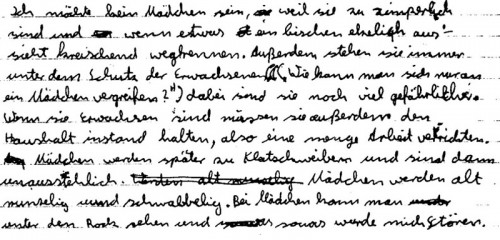 Ich möchte kein Mädchen sein, weil sie zu zimperlich
sind und wenn etwas ein bischen ekelich aus-
sieht kreischend wegrennen. Außerdem stehen sie immer
unter dem Schutz der Erwachsenen ("Wie kann man sich nur an
ein Mädchen vergreifen?") dabei sind sie noch viel gefährlicher.
Wenn sie Erwachsen sind müssen sie außerdem den
Haushalt instand halten, also eine menge Arbeit verrichten.
Mädchen werden später zu Klatschweibern und sind dann
unausstehlich. Mädchen werden alt
runselig und schwabbelig. Bei Mädchen kann man
unter den Rock sehen und sowas würde mich stören.